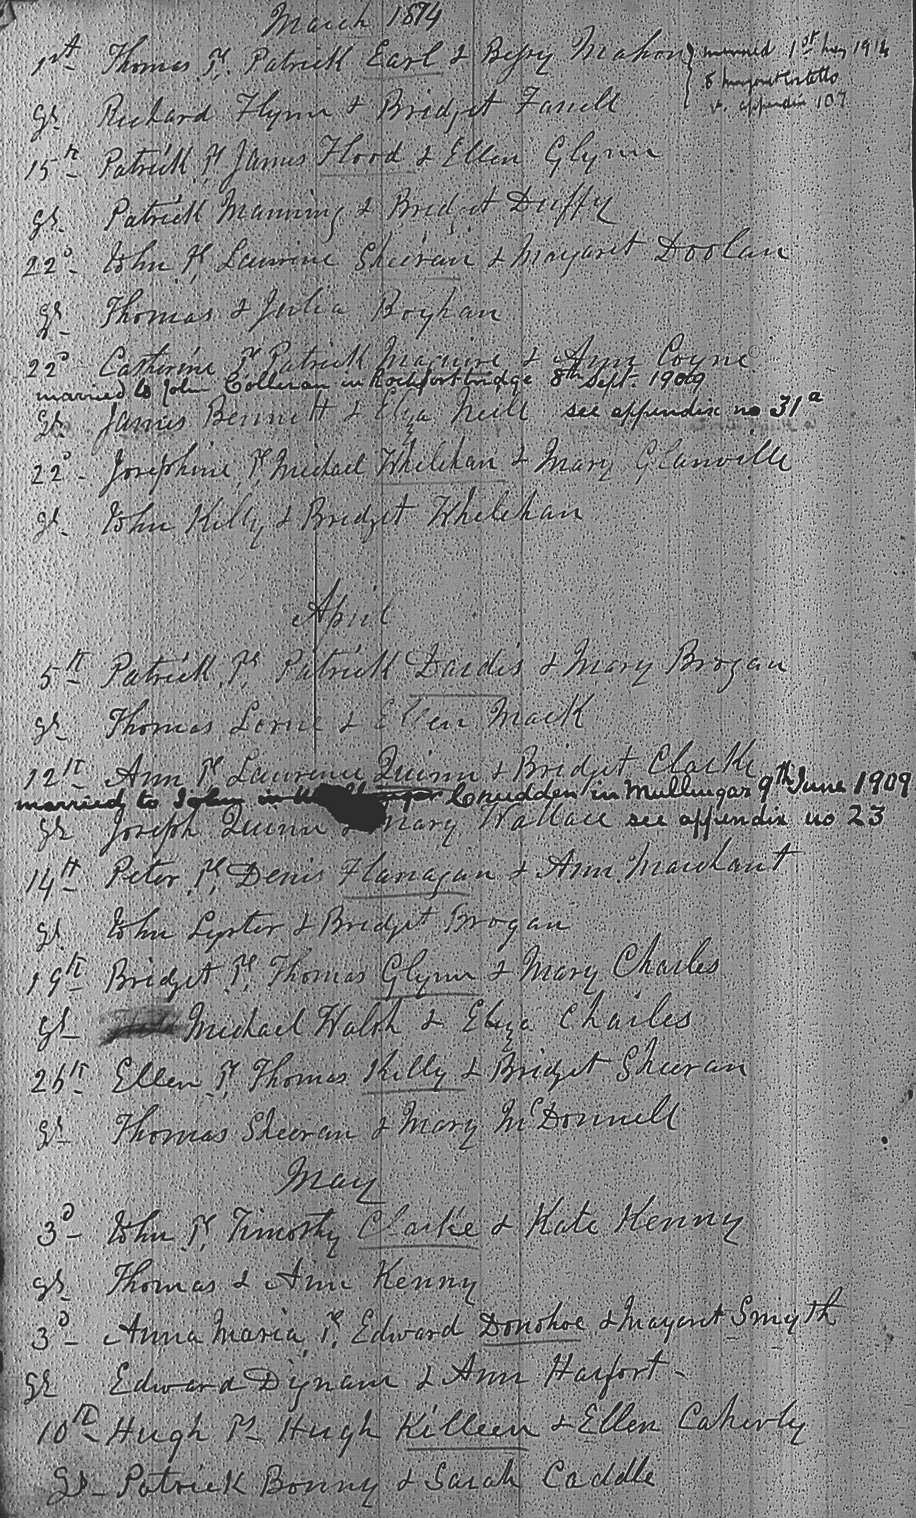 March 1874
1st Thomas Pt. Patrick Earl & Bessy Mahon } married 1st 1914
gs. Richard Flynn & Bridget Farrell & Margaret Costello
v. appendix 107
15th Patrick Pt James Flood & Ellen Glynn
gs. Patrick Manning & Bridget Duffy
22d John Pt Laurence Sheeran & Margaret Doolan
gs. Thomas & Julia Boyhan
22d Catherine Pt Patrick Maguire & Ann Coyne
married to John Colleran in Rochfortbridge 8th Sept. 1909
gs. James Bennett & Eliza Neill see appendix no 31a
22d Josephine Pt Michael Whelehan & Mary Glanville
gs. John Kelly & Bridget Whelehan
April
5th Patrick Pt Patrick Dardis & Mary Brogan
gs. Thomas Lorne & Ellen Mack
12th Ann Pt Laurence Quinn & Bridget Clarke
married to John in the in Mullingar 9th June 1909
gs Joseph Quinn & Mary Wallace see appendix no 23
14th Peter Pt Denis Flanagan & Ann Marchant
gs. John Lyster & Bridget Brogan
19th Bridget Pt Thomas Glynn & Mary Charles
gs Michael Walsh & Eliza Charles
26th Ellen Pt Thomas Kelly & Bridget Sheeran
gs. Thomas Sheeran & Mary McDonnell
May
3d John Pt Timothy Clarke & Kate Kenny
gs. Thomas & Ann Kenny
3d Anna Maria Pt. Edward Donohoe & Margaret Smyth
gs Edward Dignam & Ann Harfort
10th Hugh Pt Hugh Killeen & Ellen Caherly
gs. Patrick Bonny & Sarah Caddle